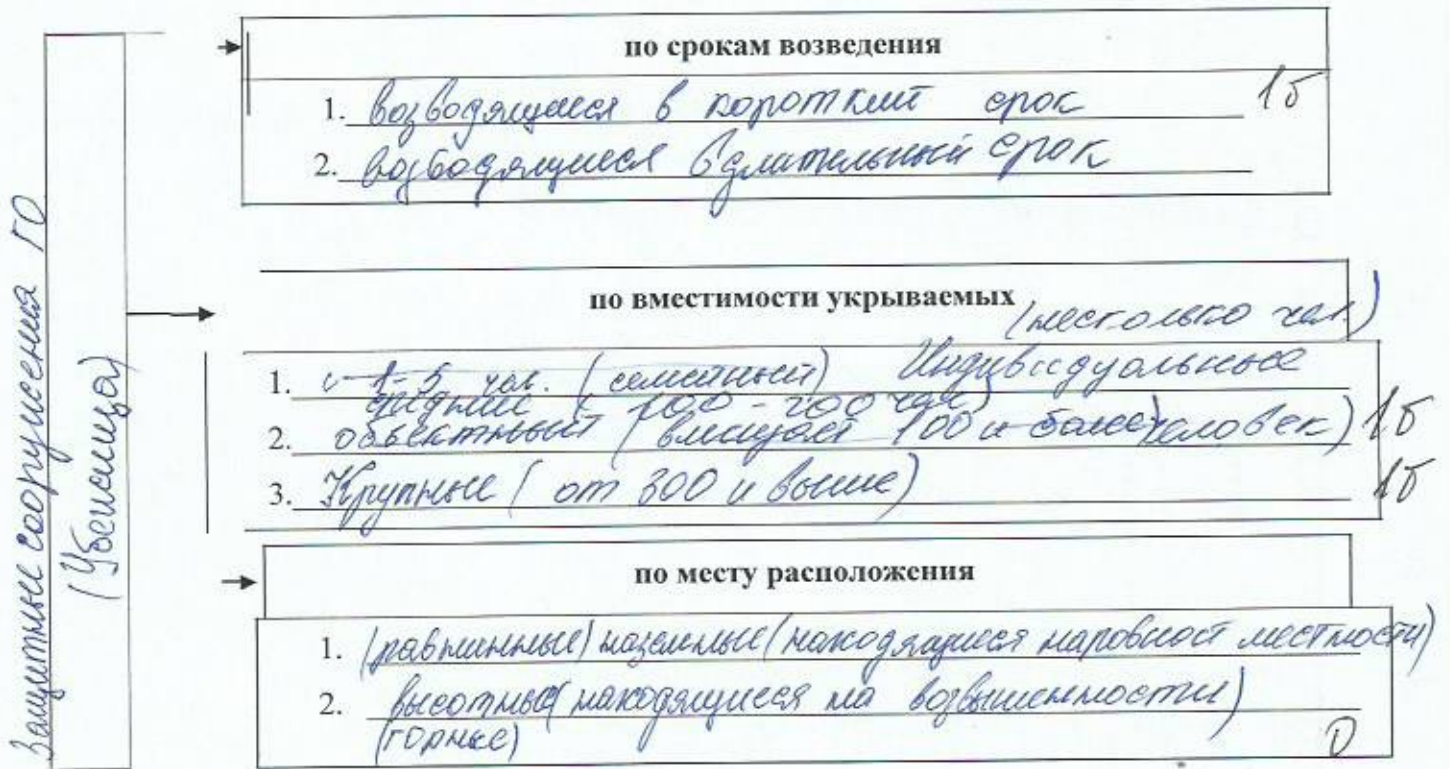 Защитные сооружения ГО
(Убежища)
по срокам возведения
1. возводящиеся в короткий срок 1б
2. возводящиеся в длительный срок
по вместимости укрываемых
(несколько чел)
1. с 1-5 чел. (семейный) Индивидуальные
средние ( 100 - 200 чел)
2. объектный (вмещает 100 и более) человек) 1б
3. Крупные (от 300 и выше) 1б
по месту расположения
1. (равнинные) наземные (находящиеся на ровной местности)
2. высотные (находящиеся на возвышенности)
(горные) 0